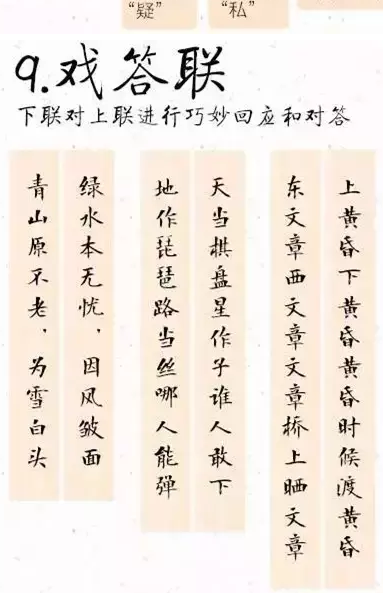 “疑”
“私”
9.戏答联
下联对上联进行巧妙回应和对答
上黄昏下黄昏黄昏时候渡黄昏
东文章西文章文章桥上晒文章
天当棋盘星作子谁人敢下
地作琵琶路当丝哪人能弹
绿水本无忧，因风皱面
青山原不老，为雪白头